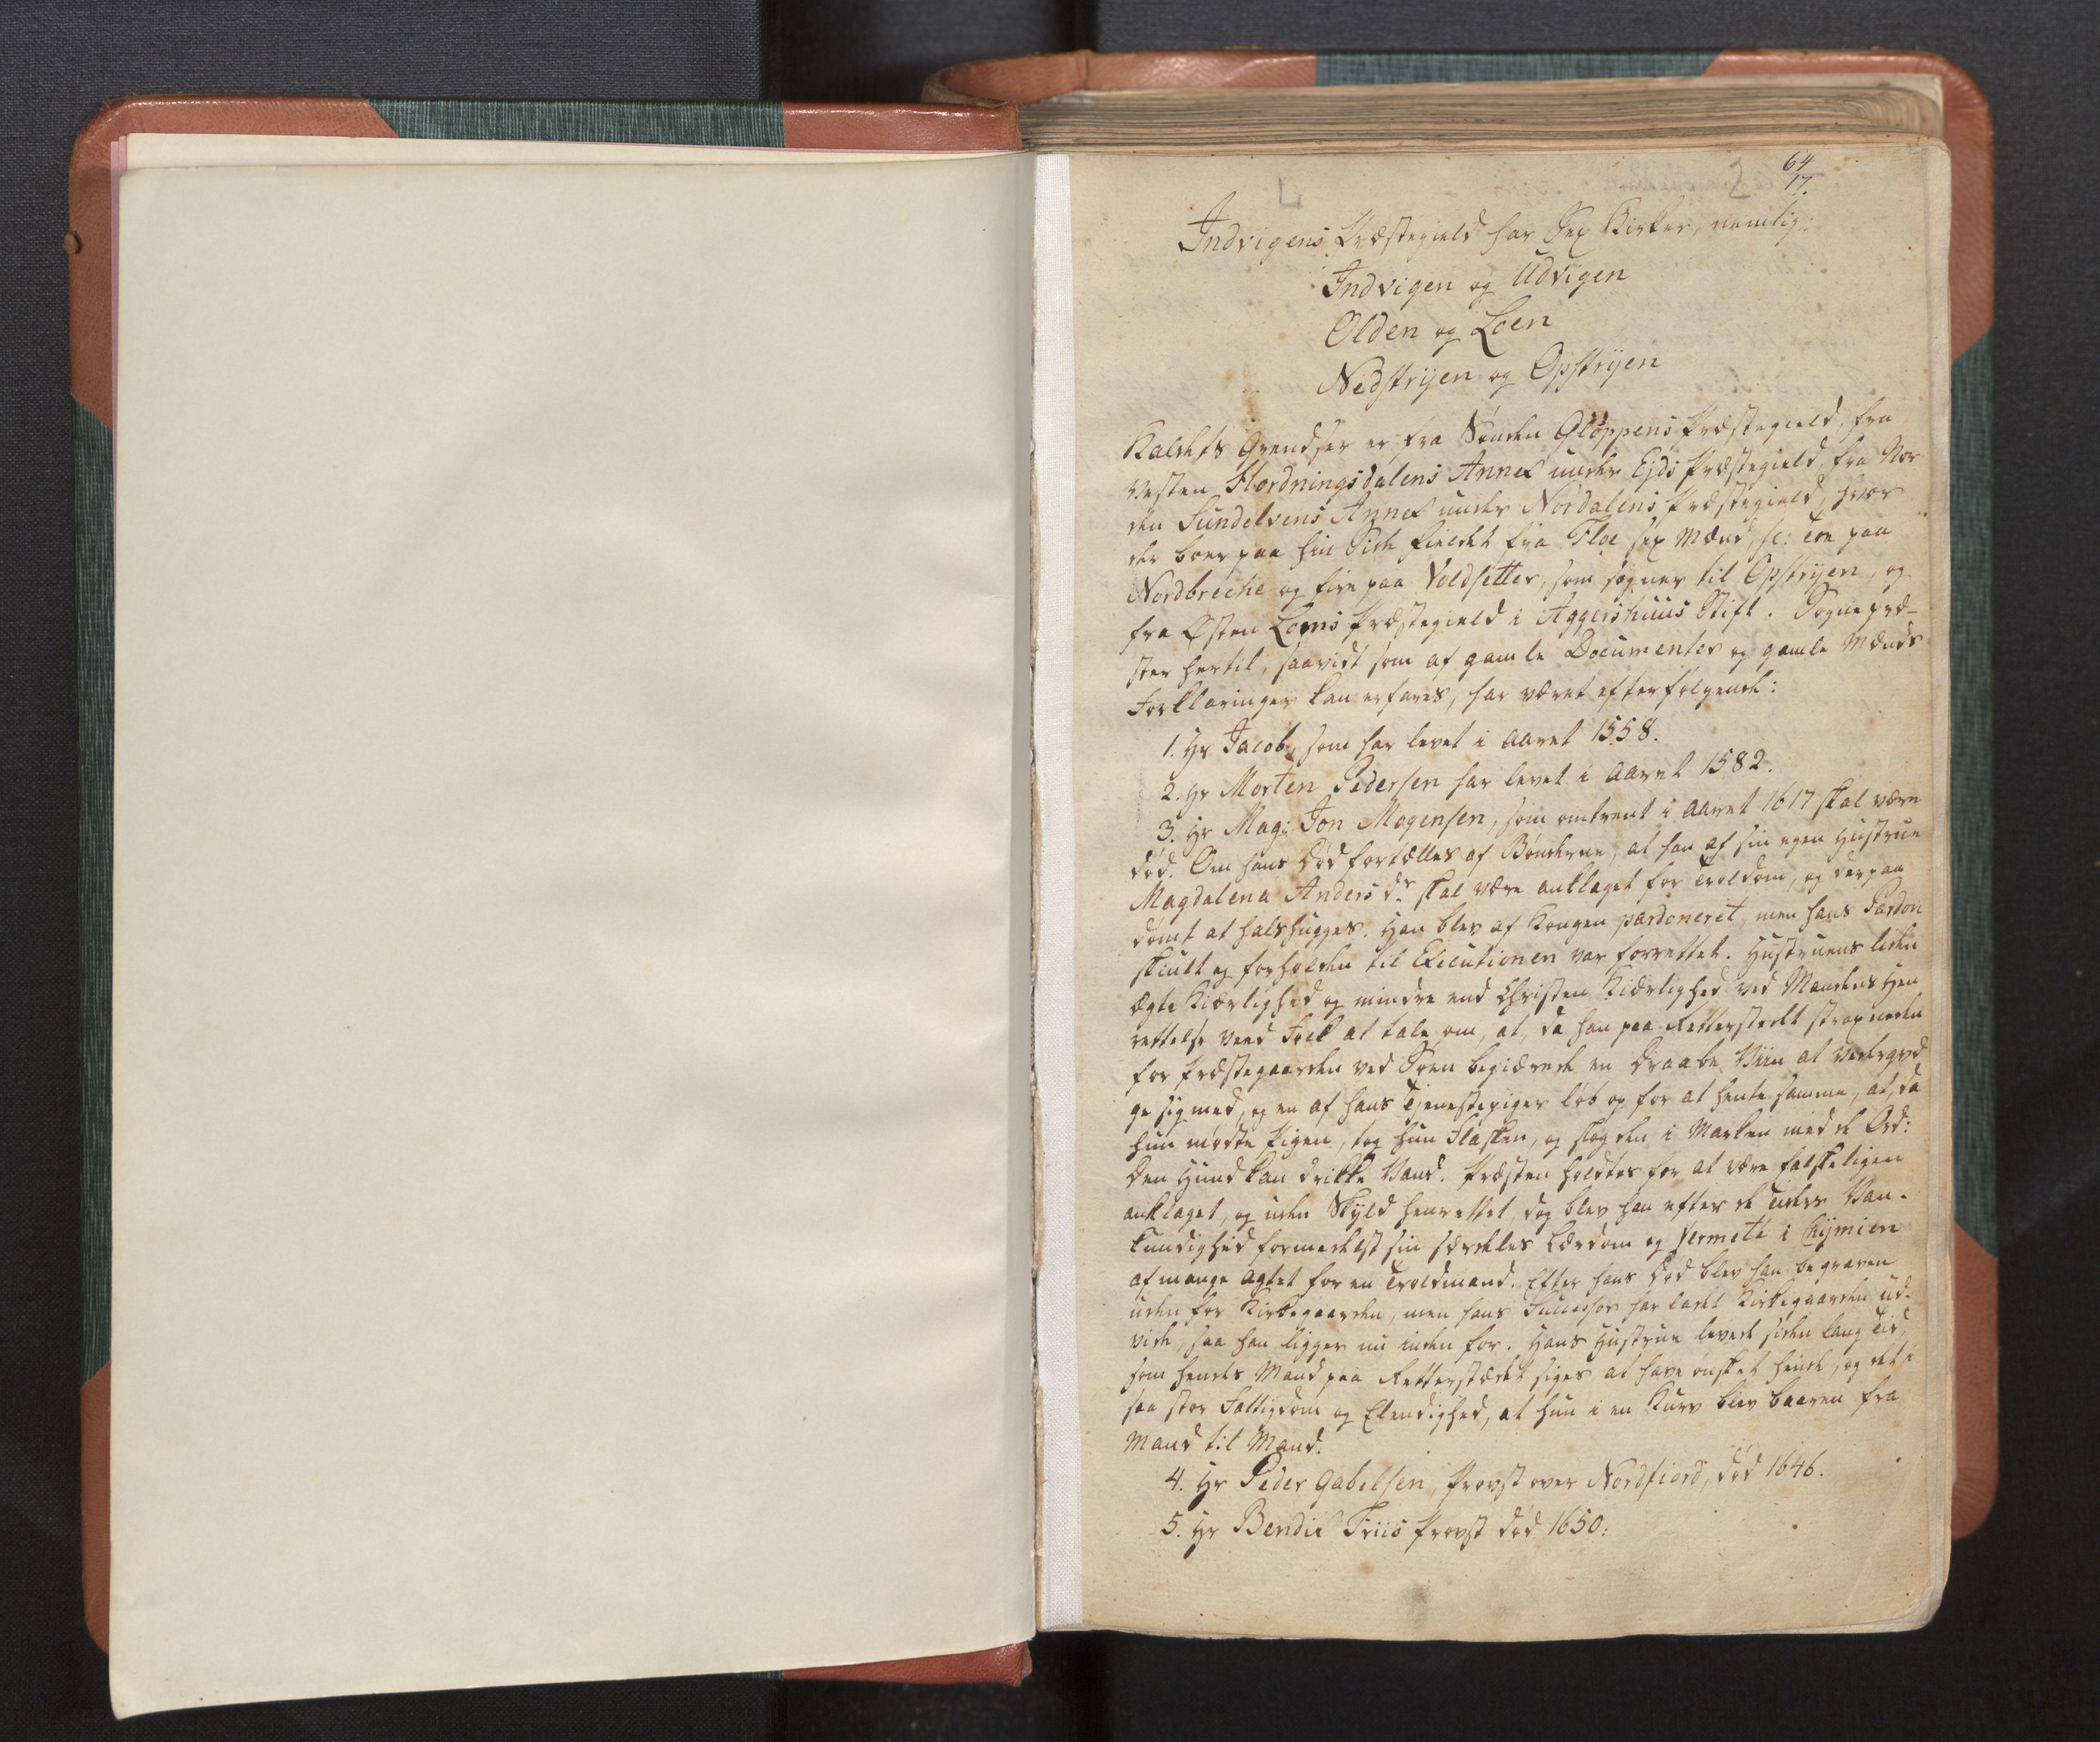 64
17.
Indvigens Præstegield har Sex Kirker, nemlig:
Indvigen og Udvigen
Olden og Loen
Nedstrÿen og Opstrÿen
Kaldets Grændser er fra Sønden Glöppens Præstegield, fra
Vesten Hordningsdalens Annex under Ejds Præstegield, fra Nor
den Sundelvens Annex under Nordalens Præstegield, hvor
der boer paa hin Side Fieldet fra Floe sex Mænd, sc: toe paa
Nordbreche og fire paa Voldsetter, som sogner til Opstrÿen, og
fra Østen Loms Præstegield i Aggershuus Stift. Sognepræ-
ster hertil, saavidt som af gamle Documenter og gamle Mænds
Forklaringer kan erfares, har været efterfølgende:
1. Hr Jacob, som har levet i Aaret 1558.
2. Hr Morten Pedersen har levet i Aaret 1582.
3. Hr Mag: Jon Mogensen, som omtrent i Aaret 1617 skal være
død. Om hans Død fortælles af Bønderne, at han af sin egen Hustrue
Magdalena Anders dr skal være anklaget for Troldom, og derpaa
dømt at halshugges. Han blev af Kongen pardoneret, men hans Pardon
skiult og forholden til Executionen var forrettet. Hustruens liden
ægte Kiærlighed og mindre end Christen Kiærlighed ved Mandens Hen
rettelse veed Folk at tale om, at, da han paa Retterstedet strax neden
for Præstegaarden ved Søen begiærede en Draabe Viin at vederqvæ
ge sig med, og en af hans Tjenestepiger løb op for at hente samme, at, da
hun mødte Pigen, tog hun Flasken, og slog den i Marken med de Ord:
Den Hund kan drikke Vand. Præsten holdtes for at være falskeligen
anklaget, og uden Skyld henrettet, dog blev han efter de Tiders Van-
kundighed formedelst sin særdeles Lærdom og i Chÿmien
af mange agtet for en Troldmand. Efter hans Død blev han begraven
uden for Kirkegaarden, men hans Successor har ladet Kirkegaarden ud-
vide, saa han ligger nu inden for. Hans Hustrue levede siden lang Tid,
som hendes Mand paa Retterstædet siges at have ønsket hende, og det i
saa stor Fattigdom og Elendighed, at hun i en Kurv blev baaren fra
Mand til Mand.
4. Hr Peder Gabelsen, Provst over Nordfiord, død 1646.
5. Hr Bendix Friis Provst død 1650: